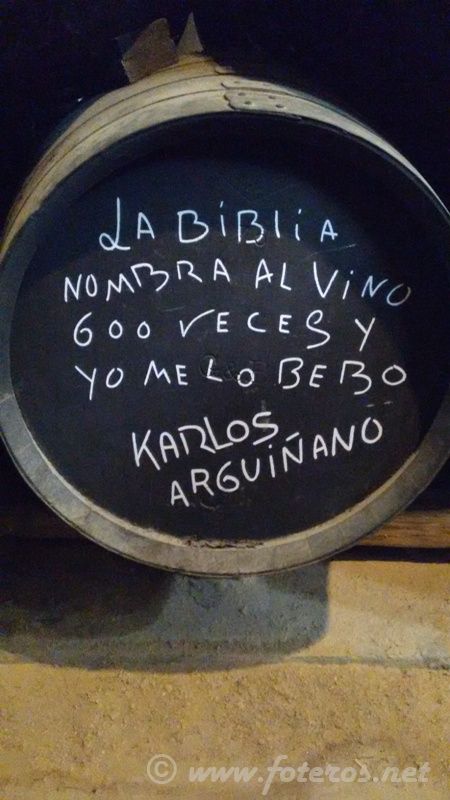 LA BiBLiA
NOMBRA AL ViNO
600 VECES Y
YO ME LO BEBO
KARLOS
ARGUiÑANO
© www.foteros.net